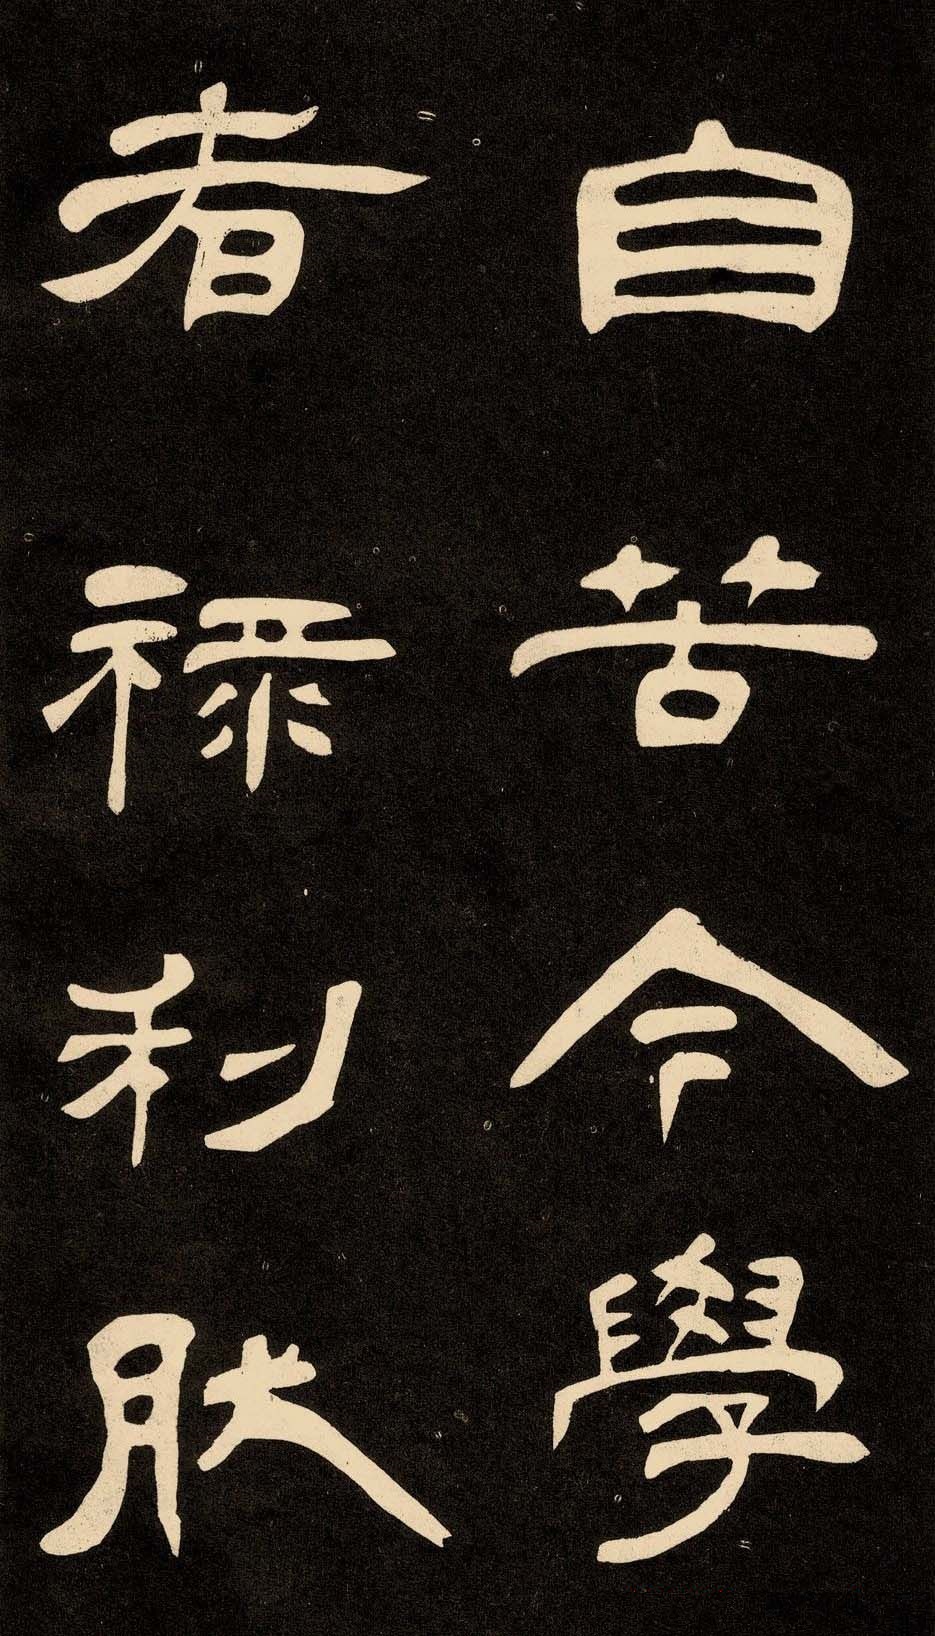 自苦今學
者祿利肰